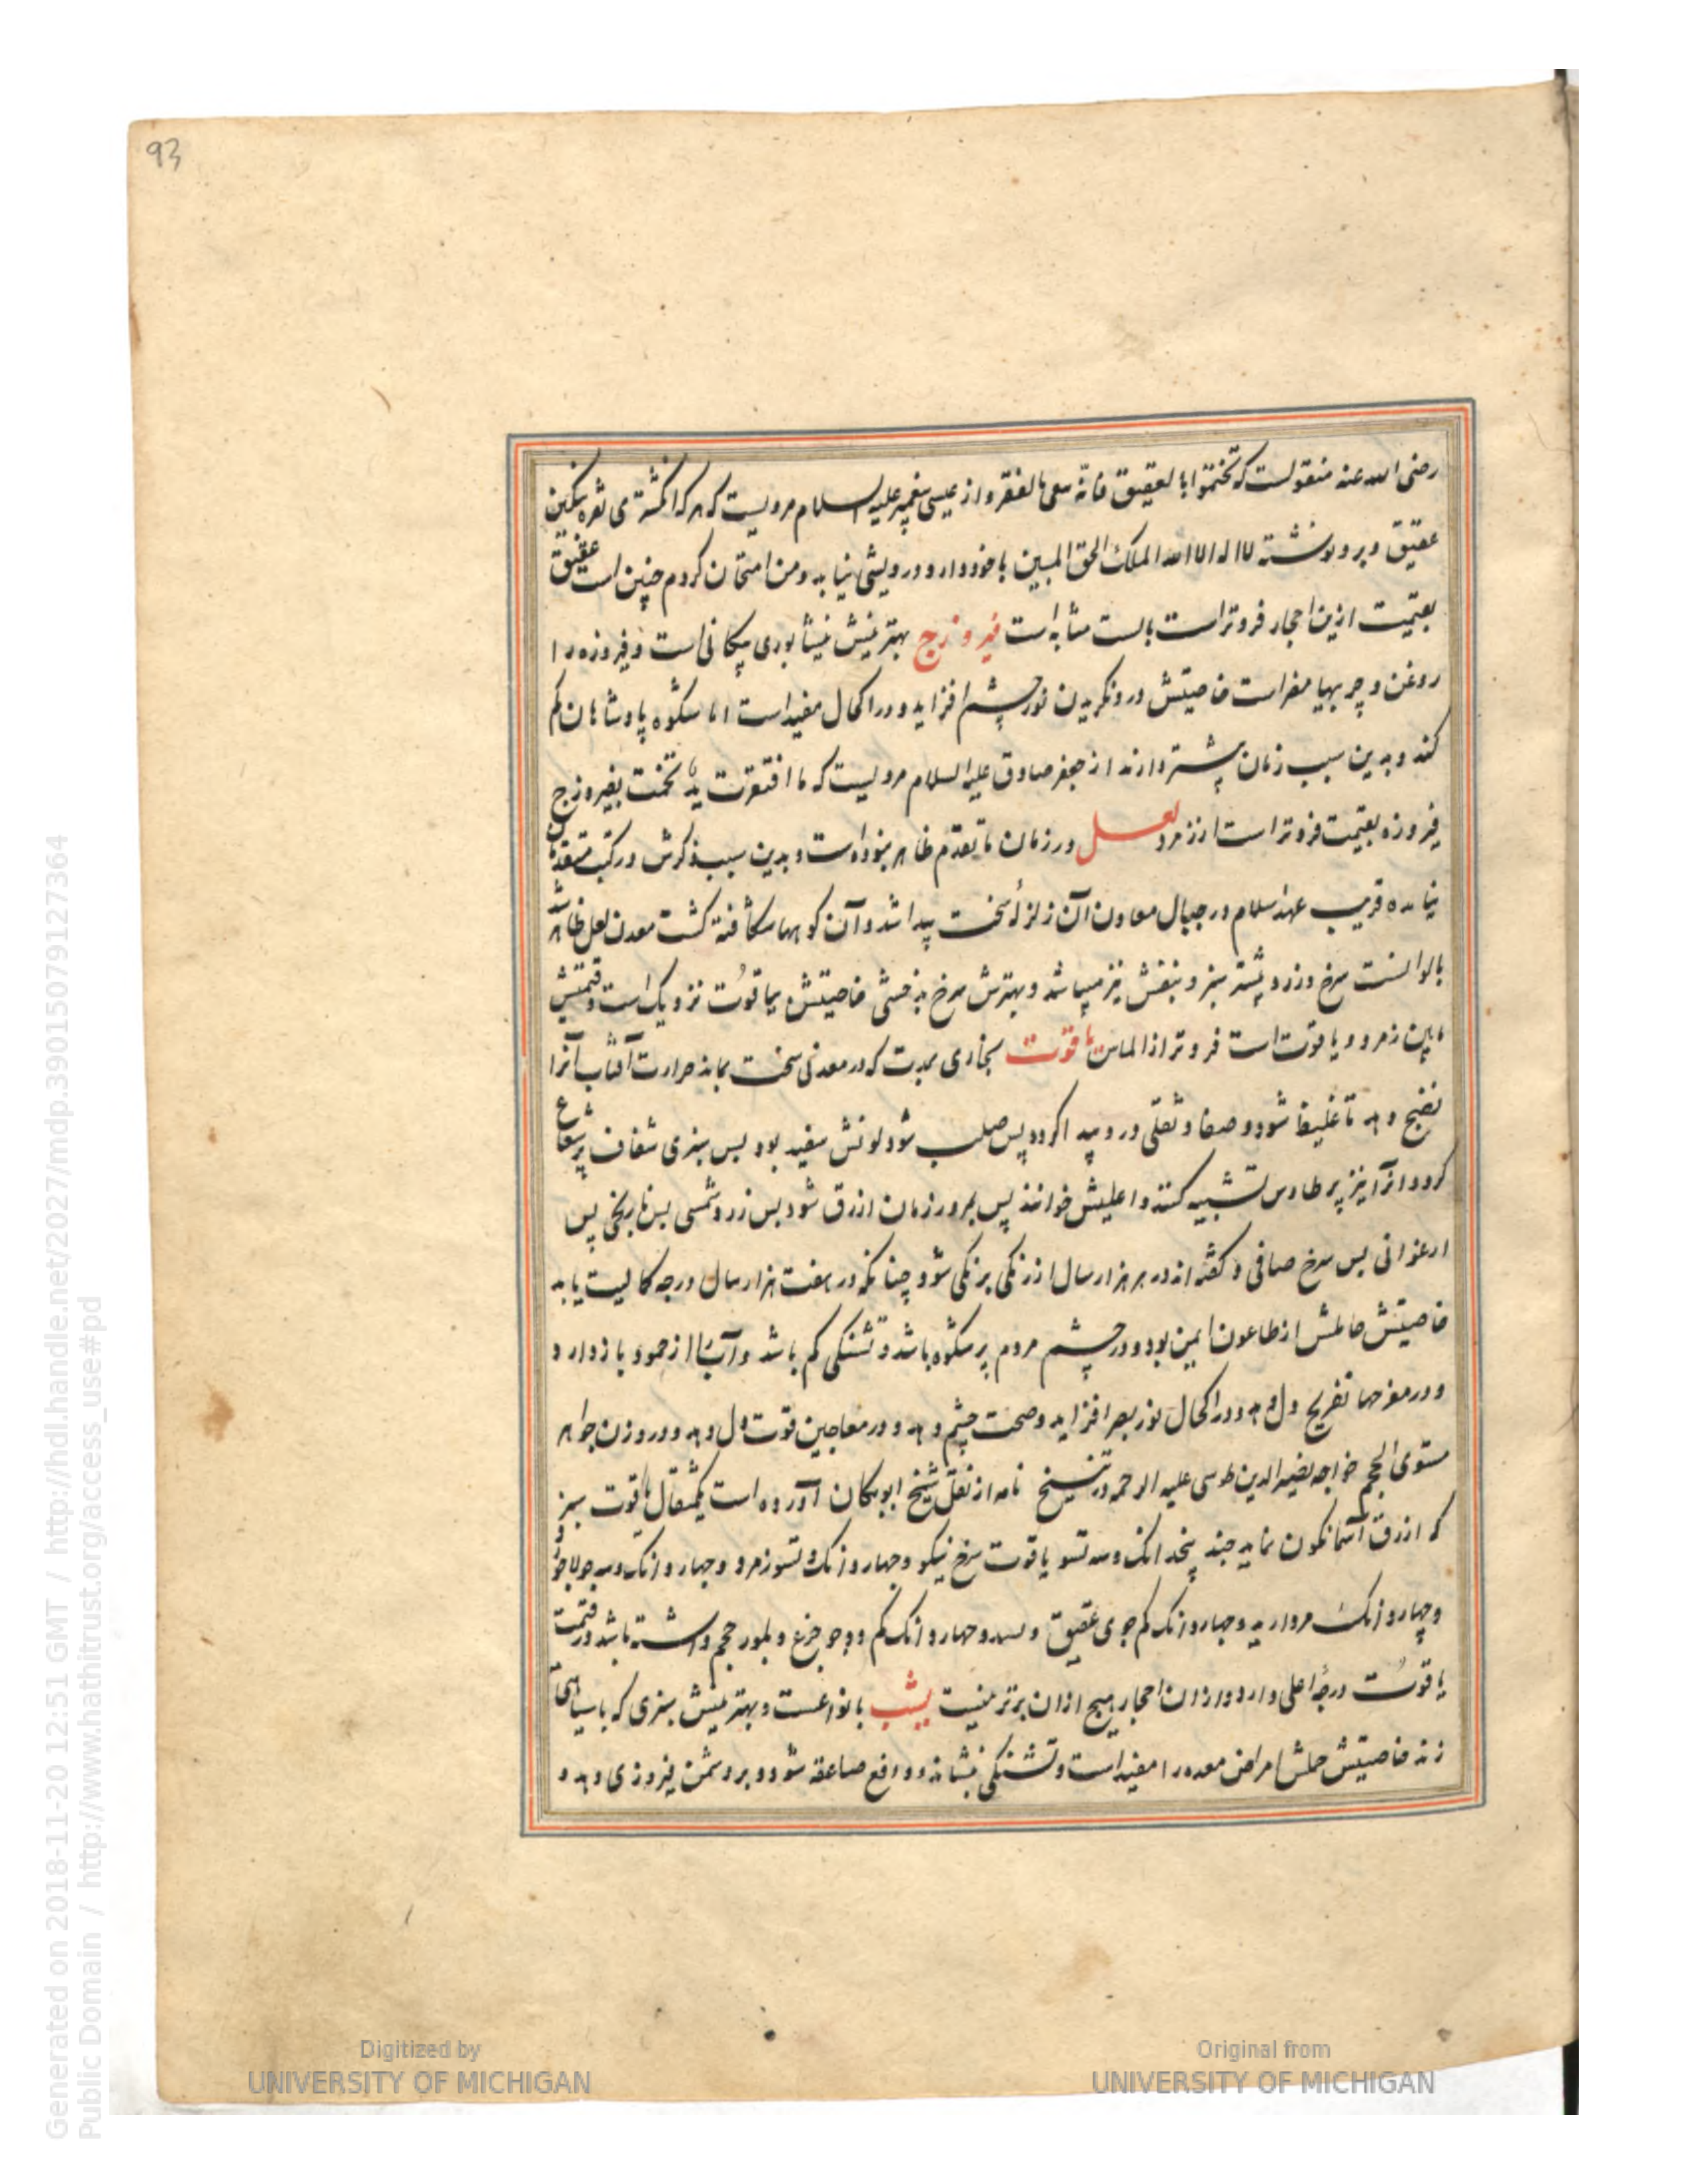 93
رضی الله عنه منقولست که تختموا بالعقیق فانه ینفی الفقر و از عیسی پیغمبر علیه السلام مرویست که هر که انگشتری نقره نگین
عقیق و برو نوشته لا اله الا الله الملک الحق المبین با خود دارد درویشی نیابد و من امتحان کردم چنین است عقیق
بقیمت ازین احجار فروتر است بالست مشابه است فیروزج بهترینش نیشابوری پیکانی است و فیروزه را
روغن و چربیها مضر است خاصیتش درو نگریدن نور چشم افزاید و در اکحال مفید است اما شکوه پادشاهان کم
کند و بدین سبب زمان پیشتر دارند از جعفر صادق علیه السلام مرویست که ما افتقرت ید تختمت بفیروزج
فیروزه بقیمت فروتر است از زمرد لعل در زمان ما تقدم ظاهر نبوده است و بدین سبب ذکرش در کتب متقدمان
نیامده قریب عهد اسلام در جبال معادن آن زلزله سخت پیدا شد و آن کوهها شکافته گشت معدن لعل ظاهر شد
بالوانست سرخ و زرد و پسته سبز و بنفش نیز میباشد و بهترش سرخ بدخشی خاصیتش بیاقوت نزدیک است و قیمتش
مابین زمرد و یاقوت است فروتر از الماس یاقوت بخاری بمدت که در معدنی سخت بماند حرارت آفتاب آنرا
نضج دهد تا غلیظ شود و صفا و ثقلی درو پیدا گردد پس صلب شود لونش سفید بود پس سبزی شفاف پر شعاع
گردد از آنیز پر طاوس تشبیه کنند و اعلیش خوانند پس بمرور زمان ازرق شود پس زرد و شمسی پس نارنجی پس
ارغوانی پس سرخ صافی و گفته اند در هر هزار سال از رنگی برنگی شود چنانکه در هفت هزار سال درجه کمالیت یابد
خاصیتش حاملش از طاعون ایمن بود و در چشم مردم پر شکوه باشد و تشنگی کم باشد و آب را از جمود باز دارد و
و در مفرحها تفریح دل دهد و در اکحال نور بصر افزاید و صحت چشم دهد و در معاجین قوت دل دهد و در وزن جواهر
مستوی الحجم خواجه نصیر الدین طوسی علیه الرحمه در تنسیخ نامه از نقل شیخ ابوریحان آورده است یکمثقال یاقوت سبز
که ازرق آسمانگون نماید چند پنجدانک و سه تسو یاقوت سرخ نیکو و چهار دانک و تسو زمرد و چهار دانک و سه جو لاجورد
و چهار دانک مروارید و چهار دانک کم جوی عقیق و بسد و چهار دانک کم دو جو جزع و بلور حجم داشته باشد و قیمت
یاقوت درجه اعلی دارد و از ان احجار هیچ ازان برتر نیست یشب بانواعست و بهترینش سبزی که با سیاهی
زند خاصیتش حملش امراض معده را مفید است و تشنگی بنشاند و دافع صاعقه شود و بر دشمن فیروزی دهد و
Digitized by
UNIVERSITY OF MICHIGAN
Original from
UNIVERSITY OF MICHIGAN
Generated on 2018-11-20 12:51 GMT / http://hdl.handle.net/2027/mdp.39015079127364
Public Domain / http://www.hathitrust.org/access_use#pd